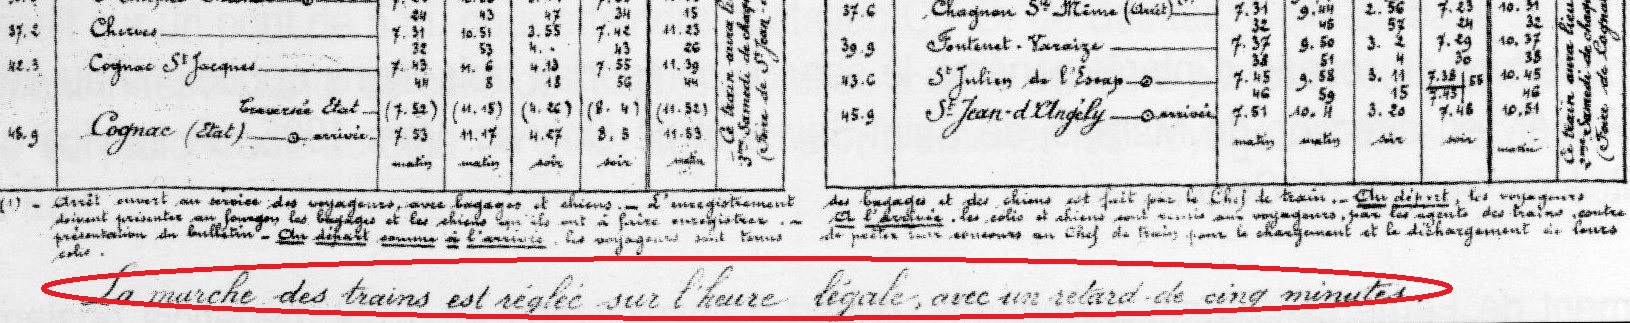 24 43 47 34 15
37.2 Cherves 7.31 10.51 3.55 7.42 11.23
32 53 4.- 43 26
42.3 Cognac St Jacques 7.43 11.6 4.13 7.55 11.39
44 8 18 56 44
Traversée Etat (7.52) (11.15) (4.26) (8.4) (11.52)
Cognac (Etat) arrivée 7.53 11.17 4.27 8.5 11.53
matin matin soir soir matin
Ce train aura lieu
Samedi de chaque
(Foire de St Jean
37.6 Chagnon Ste Même (Arrêt) 7.31 9.44 2.56 7.23 10.31
32 45 57 24 32
39.9 Fontenet-Varaize 7.37 9.50 3.2 7.29 10.37
38 51 4 30 38
43.6 St Julien de l'Escap 7.45 9.58 3.11 7.38 55 10.45
46 59 15 7.45 46
45.9 St Jean-d'Angély arrivée 7.51 10.4 3.20 7.46 10.51
matin matin soir soir matin
Ce train aura lieu
Samedi de chaque
(Foire de Cognac
(1) - Arrêt ouvert au service des voyageurs, avec bagages et chiens. - L'enregistrement
des bagages et des chiens est fait par le Chef de train. - Au départ, les voyageurs
doivent présenter au fourgon les bagages et les chiens qu'ils ont à faire enregistrer. -
A l'arrivée, les colis et chiens sont remis aux voyageurs, par les agents des trains, contre
présentation du bulletin - Au départ comme à l'arrivée, les voyageurs sont tenus
de prêter leur concours au Chef de train pour le chargement et le déchargement de leurs
colis.
La marche des trains est réglée sur l'heure légale, avec un retard de cinq minutes.